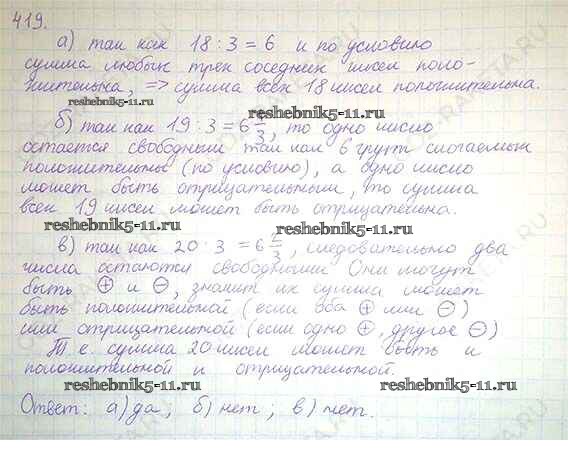 419.
а) так как 18 : 3 = 6 и по условию
сумма любых трех соседних чисел поло-
жительна, => сумма всех 18 чисел положительна.
reshebnik5-11.ru
reshebnik5-11.ru
б) так как 19 : 3 = 6 1/3, то одно число
остается свободным так как 6 групп слагаемых
положительные (по условию), а одно число
может быть отрицательным, то сумма
всех 19 чисел может быть отрицательна.
reshebnik5-11.ru
reshebnik5-11.ru
в) так как 20 : 3 = 6 2/3, следовательно два
числа остаются свободными Они могут
быть ⊕ и ⊖, значит их сумма может
быть положительной (если оба ⊕ или ⊖)
или отрицательной (если одно ⊕, другое ⊖)
Т. е. сумма 20 чисел может быть и
положительной и отрицательной.
reshebnik5-11.ru
reshebnik5-11.ru
Ответ: а) да; б) нет; в) нет.